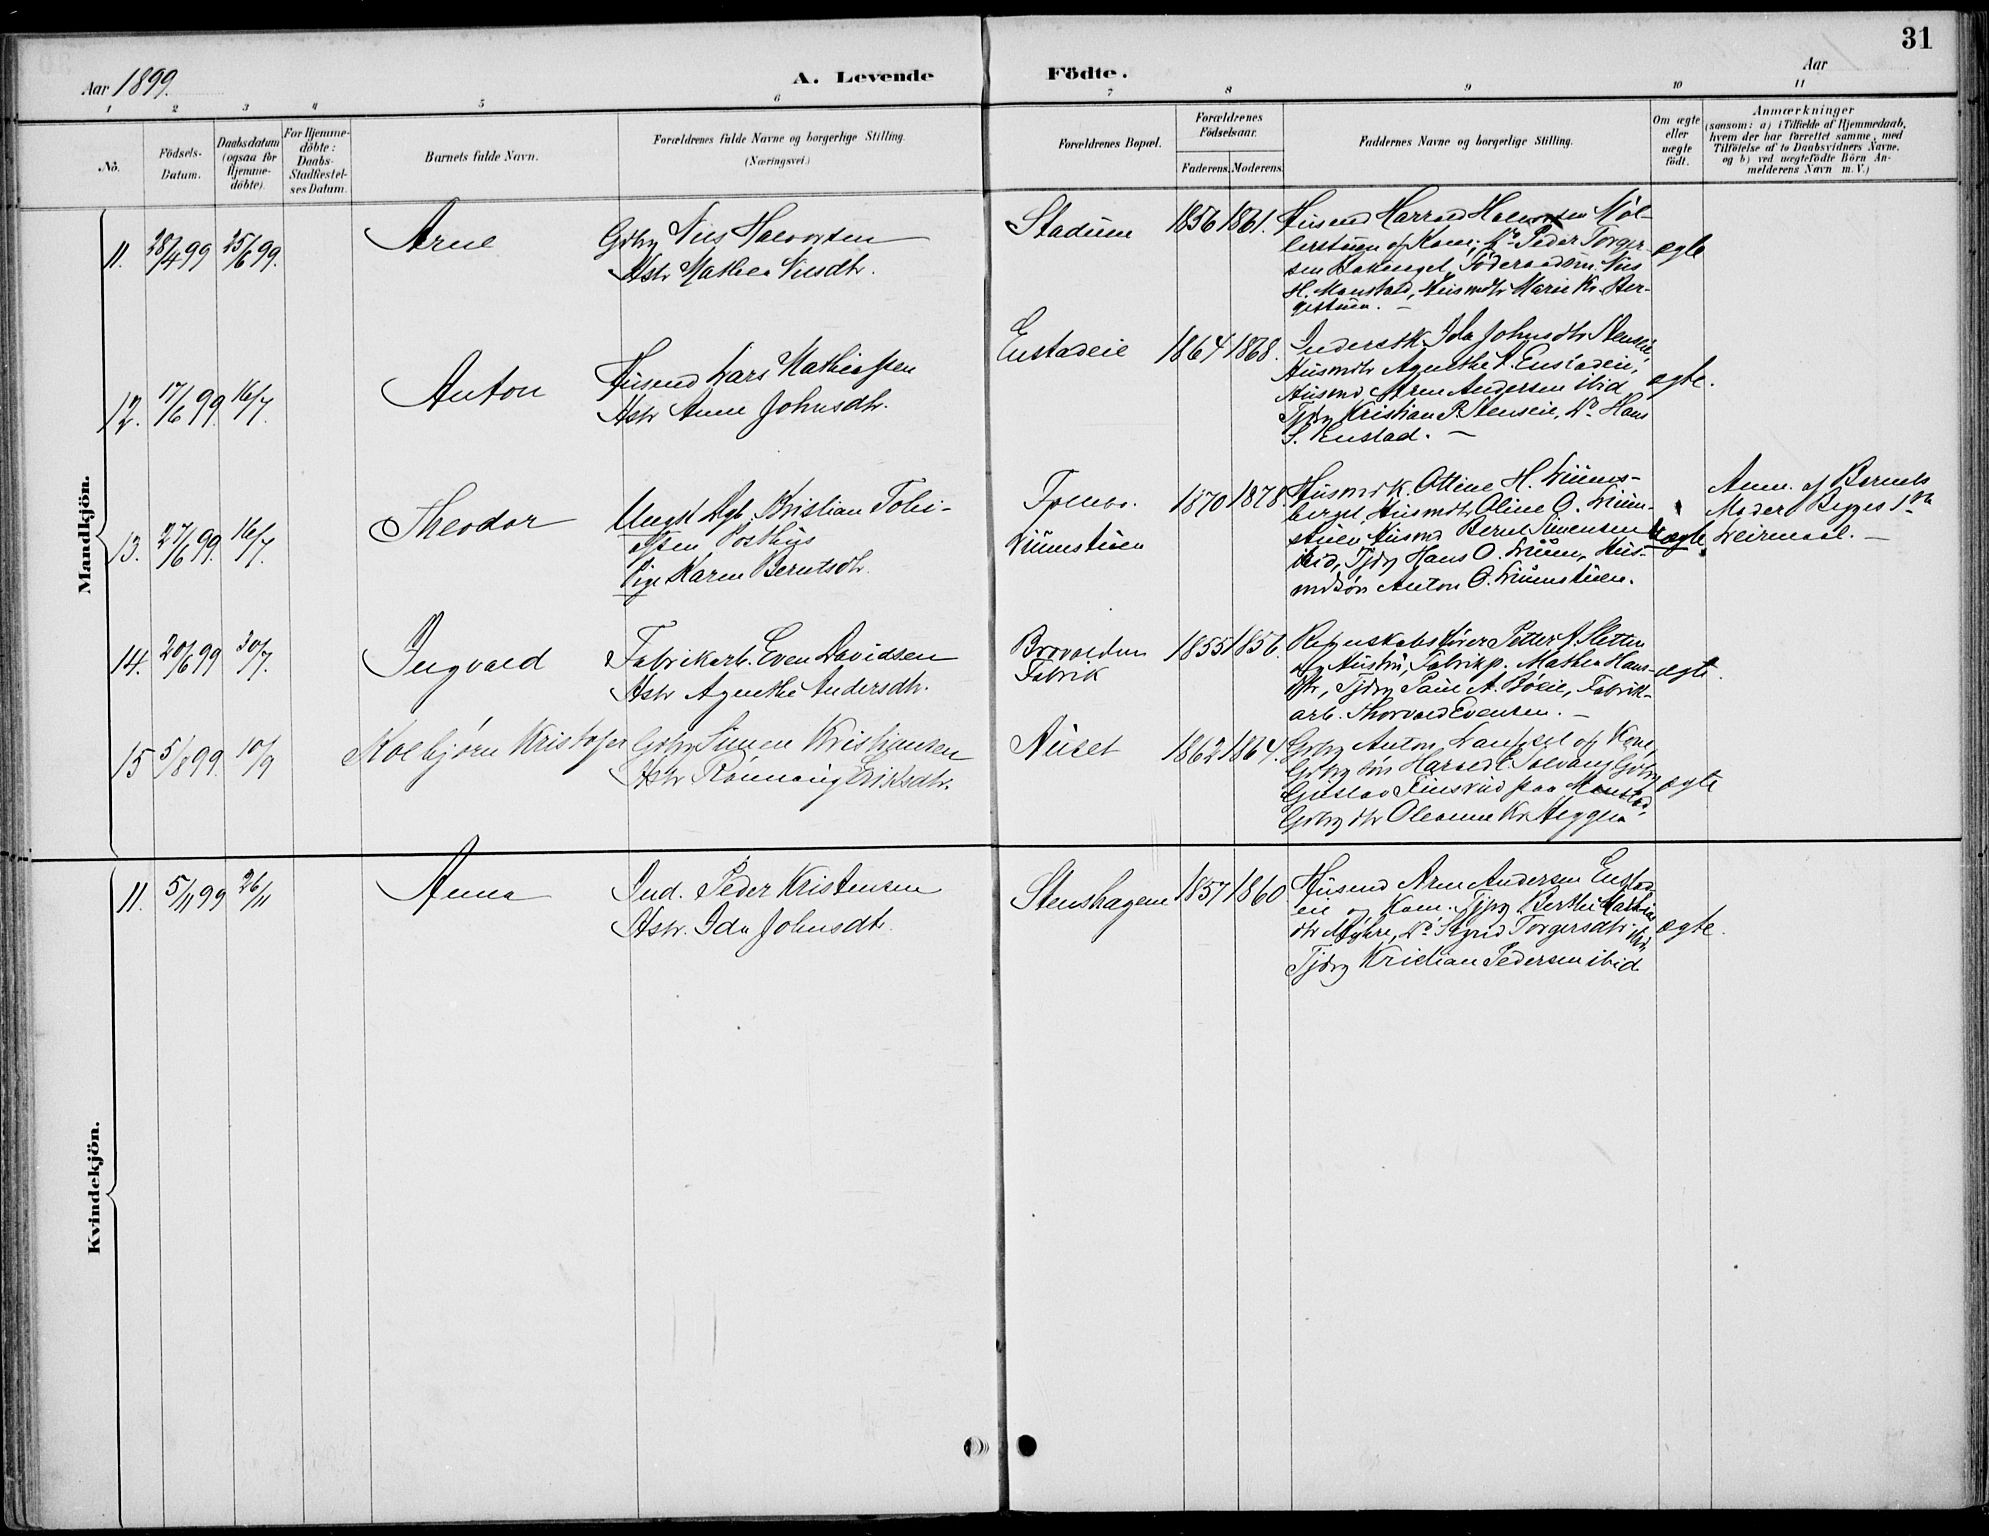 31
Aar 1899.
A. Levende
Födte.
Aar
1 2 3 4 5 6 7 8 9 10 11
No.
Födsels-
Datum.
Daabsdatum
(ogsaa for
Hjemme-
döbte).
For Hjemme-
döbte:
Daabs-
Stadfæstel-
ses Datum.
Barnets fulde Navn.
Forældrenes fulde Navne og borgerlige Stilling.
(Næringsvei.)
Forældrenes Bopæl.
Forældrenes
Födselsaar.
Faderens. Moderens.
Faddernes Navne og borgerlige Stilling.
Om ægte
eller
uægte
födt.
Anmærkninger
(saasom: a) i Tilfælde af Hjemmedaab,
hvem der har forrettet samme, med
Tilföielse af to Daabsvidners Navne,
og b) ved uægtefödte Börn An-
melderens Navn m. V.)
Mandkjön.
11. 28/4 99 25/6 99. Arne
Gdbr. Nils Halvorsen
Hstr Mathea Nilsdtr.
Stadum 1856 1861.
Husmd Harald Halvorsen Möl-
lerstuen og Kone, Do Peder Torger-
sen Bakkenget, Föderaadsm. Nils
H. Monstad, Husmdtr Marie Kr. Ber-
gestuen. —
ægte
12. 17/6 99. 16/7. Anton
Husmd Lars Mathiassen
Hstr Anne Johnsdtr.
Enstadeie 1864 1868.
Inderstk. Ida Johnsdtr Stenseie
Husmdtr Agnethe A. Enstadeie,
Husmd Arne Andersen ibid
Tjdrg Kristian P. Stenseie, Do Hans
S. Enstad. —
ægte.
13. 27/6 99. 16/7. Theodor
Ungk Dgb. Kristian Tobi-
assen Posthus
Pige Karen Berntsdtr.
Follebo.
Linnstuen
1870 1878.
Husmdk. Ottine H. Linns-
berget, Husmdtr Oline O. Linn-
stuen, Husmd Bernt Simensen
ibid, Tjdrg Hans O. Linn, Hus-
mdsön Anton O. Linnstuen.
uægte.
Anm. af Barnets
Moder Begges 1ste
Leiermaal. —
14. 20/6 99 30/7. Ingvald
Fabrikarb. Even Davidsen
Hstr Agnethe Andersdtr.
Brovolden
Fabrik
1855 1856.
Regnskabsförer Petter A. Sletten
og Hustru, Fabrikp. Mathea Hans-
dtr, Tjdrg Paul A. Böeie, Fabrik-
arb. Thorvald Evensen. —
ægte.
15 5/8 99. 10/9 Kolbjörn Kristofer
Gdbr. Simen Kristiansen
Hstr Rönnaug Eriksdtr.
Auset 1862 1864.
Gdbr Anton Langset og Kone,
Gdbrg sön Harald E. Solvang, Gdbrg
Gustav Finsrud paa Monstad,
Gdbrg dtr Oleanne Kr. Heggen
ægte
Kvindekjön.
11. 5/11 99 26/11 Anna
Ind. Peder Kristensen
Hstr. Ida Johnsdtr.
Stenshagen 1857 1860
Husmd Arne Andersen Enstad-
eie og Kone. Tjpg Berthe Mathias
dtr Myhre, Do Sigrid Torgersdtr ibid,
Tjdrg Kristian Pedersen ibid
ægte.